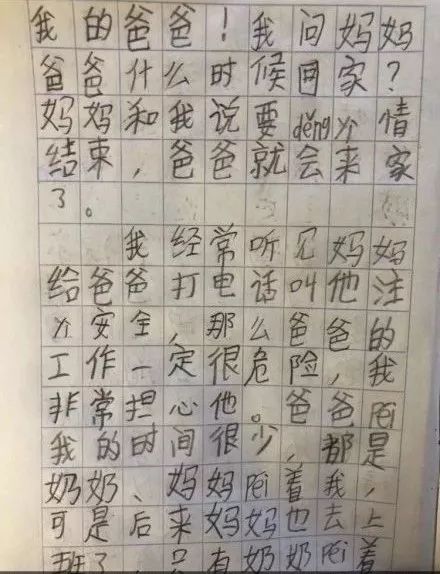 我的爸爸！我问妈妈
爸爸什么时候回家？
妈妈和我说要děng yì情
结束，爸爸就会来家
了。
我经常听见妈妈
给爸爸打电话叫他注
yì安全，那么爸爸的
工作一定很危险，我
非常担心他。爸爸péi
我的时间很少，都是
奶奶、妈妈péi着我，
可是后来妈妈也去上
班了，只有奶奶péi着